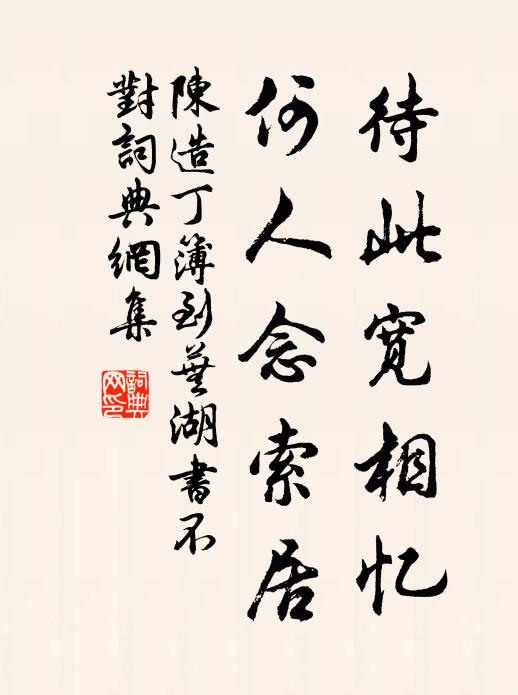 待此宽相忆
何人念索居
陳造丁簿到蕪湖書不
對詞典網集
詞典网印